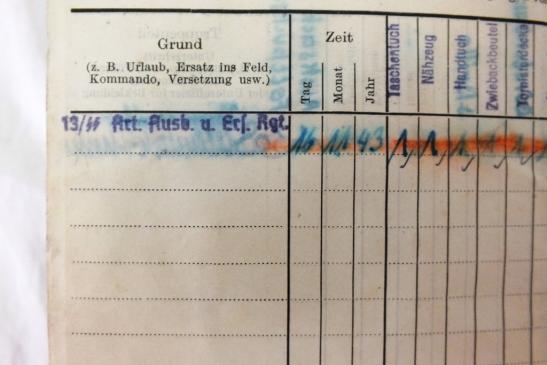 Grund
(z. B. Urlaub, Ersatz ins Feld,
Kommando, Versetzung usw.)
Zeit
Tag
Monat
Jahr
Taschentuch
Nähzeug
Handtuch
Zwiebackbeutel
13/SS Art. Ausb. u. Ers. Rgt. 16 11 43 1, 1, 1, 1, 1,